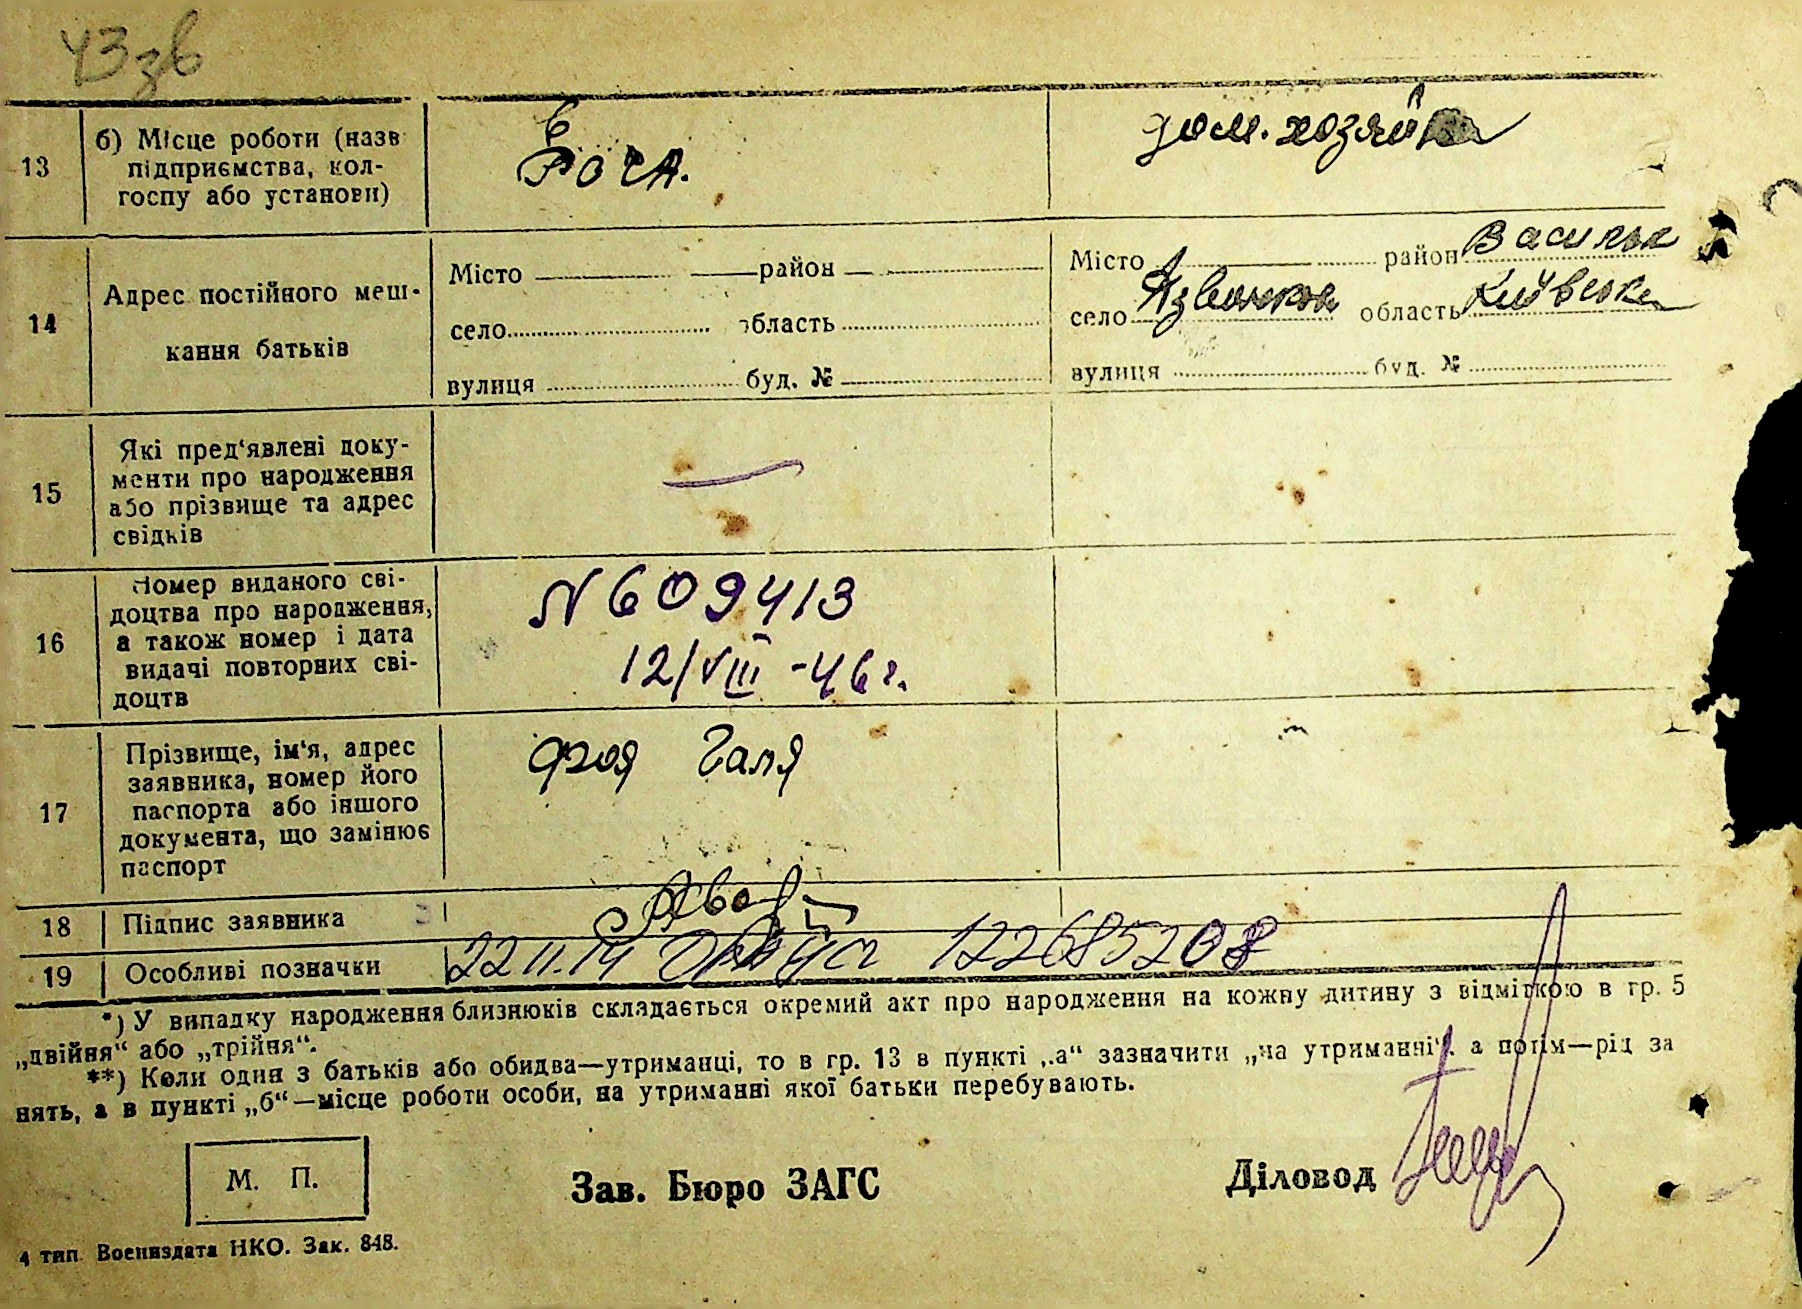 43зв
13
б) Місце роботи (назв
підприємства, кол-
госпу або установи)
в
РОЧА.
дом. хозяйка
14
Адрес постійного меш-
кання батьків
Місто район
село область
вулиця буд. №
Місто район Васильк
село область Київська
вулиця буд. №
15
Які пред'явлені доку-
менти про народження
або прізвище та адрес
свідків
—
16
Номер виданого сві-
доцтва про народження,
а також номер і дата
видачі повторних сві-
доцтв
N 609413
12/VIII -46г.
17
Прізвище, ім'я, адрес
заявника, номер його
паспорта або іншого
документа, що замінює
паспорт
Фроя Галя
18 Підпис заявника
19 Особливі позначки
22 11.14 122685208
*) У випадку народження близнюків складається окремий акт про народження на кожну дитину з відміткою в гр. 5
„двійня“ або „трійня“.
**) Коли один з батьків або обидва—утриманці, то в гр. 13 в пункті „а“ зазначити „на утриманні“, а потім—рід за
нять, а в пункті „б“—місце роботи особи, на утриманні якої батьки перебувають.
М. П.
Зав. Бюро ЗАГС
Діловод
4 тип. Воениздата НКО. Зак. 848.